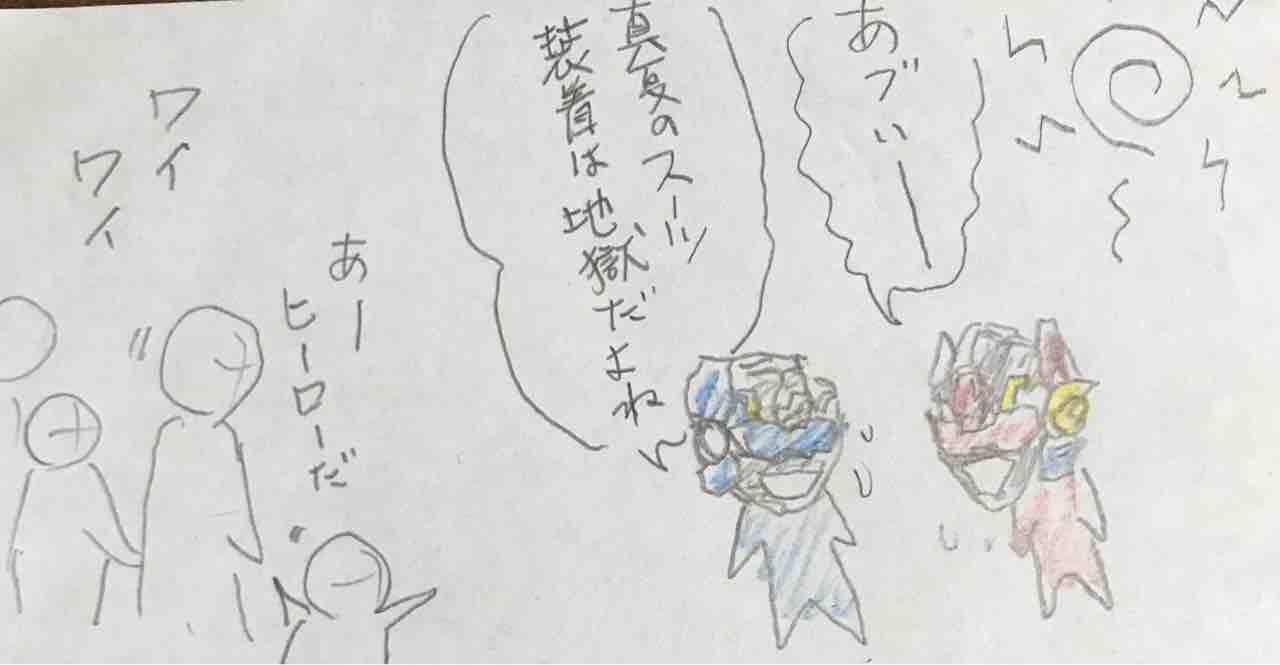 あづいー
真夏のスーツ
装着は地獄だよね〜
あー
ヒーローだ
ワイ
ワイ